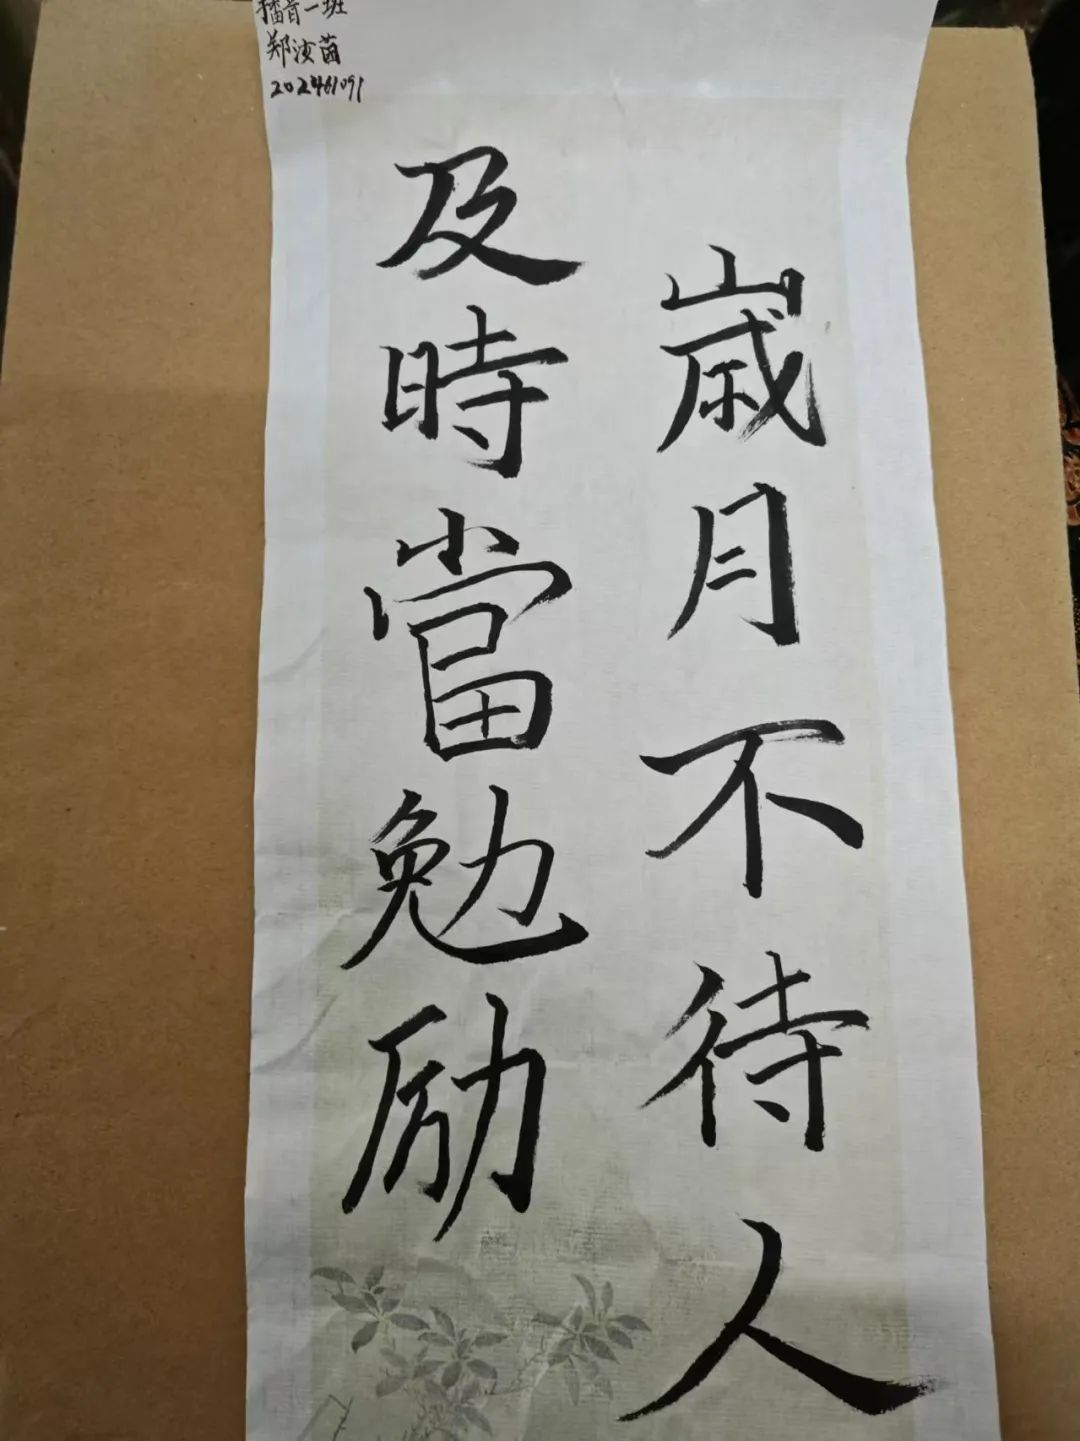 播音一班
郑汝茵
202461091
歲月不待人
及時當勉励